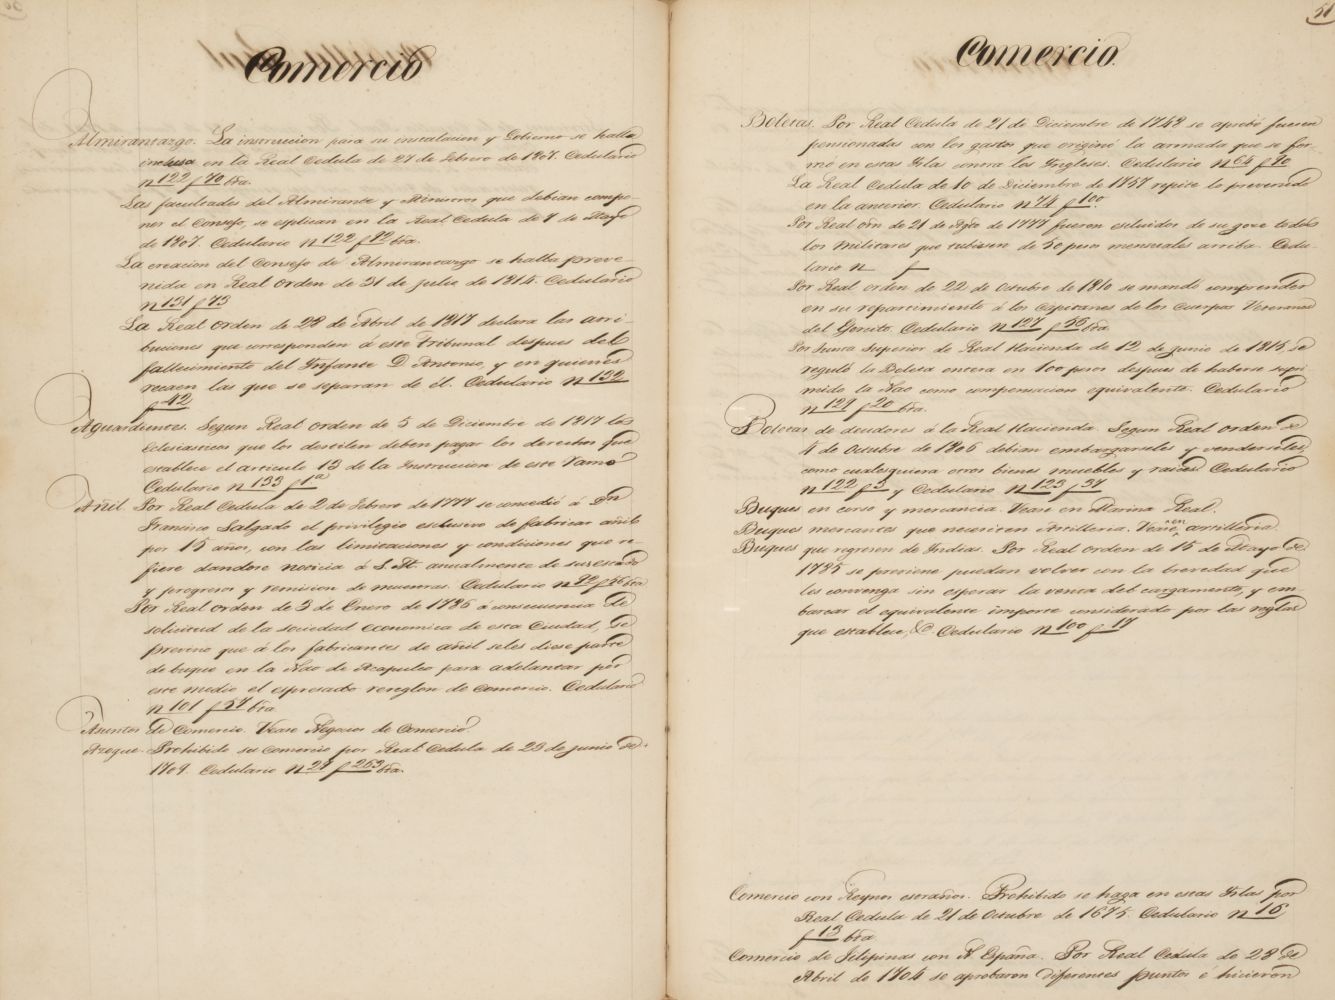 Comercio
Almirantazgo. La instruccion para su instalacion y Gobierno se halla
inclusa en la Real Cedula de 27 de Febrero de 1807. Cedulario
n 122 f 70 bta.
Las facultades del Almirante y Ministros que debian compo-
ner el Consejo, se esplican en la Real Cedula de 7 de Mayo
de 1807. Cedulario n 122 f 92 bta.
La creacion del Consejo de Almirantazgo se halla preve-
nida en Real orden de 31 de julio de 1814. Cedulario
n 131 f 73
La Real orden de 28 de Abril de 1817 declara las atri-
buciones que corresponden á este Tribunal, despues del
fallecimiento del Infante D Antonio, y en quienes
recaen las que se separan de él. Cedulario n 132
f 42
Aguardientes. Segun Real orden de 5 de Diciembre de 1817 los
Eclesiasticos que los destilen deben pagar los derechos que
establece el articulo 13 de la Instruccion de este Ramo
Cedulario n 133 f 1a
Añil. Por Real Cedula de 2 de Febrero de 1777 se concedió á Dn
Francisco Salgado el privilegio esclusivo de fabricar añil
por 15 años, con las limitaciones y condiciones que re-
fiere dandose noticia á S.M. anualmente de su estado
y progresos y remision de muestras. Cedulario n 92 f 56 bta
Por Real orden de 3 de Enero de 1786 á consecuencia de
solicitud de la sociedad economica de esta Ciudad, se
previno que á los fabricantes de añil se les diese parte
de buque en la Nao de Acapulco para adelantar por
este medio el espresado renglon de comercio. Cedulario
n 101 f 57 bta
Asuntos de Comercio. Vease Negocios de Comercio.
Azogue. Prohibido su comercio por Real Cedula de 23 de junio de
1709. Cedulario n 27 f 263 bta.
51
Comercio.
Boletas. Por Real Cedula de 21 de Diciembre de 1748 se aprobó fueren
pensionadas con los gastos que originó la armada que se for-
mó en estas Yslas contra los Yngleses. Cedulario n 64 f 90
La Real Cedula de 10 de Diciembre de 1757 repite lo prevenido
en la anterior. Cedulario n 74 f 100.
Por Real orn de 21 de Agto de 1777 fueron escluidos de su goze todos
los Militares que tubiesen de 50 pesos mensuales arriba. Cedu-
lario n f
Por Real orden de 22 de Octubre de 1810 se mandó comprender
en su repartimiento á los Capitanes de los Cuerpos Veteranos
del Egercito. Cedulario n 127 f 55 bta
Por Junta Superior de Real Hacienda de 12 de junio de 1815, se
reguló la Boleta entera en 100 pesos despues de haberse supri-
mido la Nao como compensacion equivalente. Cedulario
n 129 f 20 bta.
Boletas de deudores á la Real Hacienda. Segun Real orden de
4 de Octubre de 1806 debian embargarseles y venderseles,
como cualesquiera otros bienes muebles y raices. Cedulario
n 122 f 3 y Cedulario n 123 f 37
Buques en corso y mercancia. Vease en Marina Real.
Buques mercantes que necesiten Artilleria. Vease en artilleria.
Buques que regresen de Indias. Por Real orden de 15 de Mayo de
1785 se previene puedan volver con la brevedad que
les convenga sin esperar la venta del cargamento, y em-
barcar el equivalente importe considerado por las reglas
que establece, &c. Cedulario n 100 f 17
Comercio con Reynos estraños. Prohibido se haga en estas Yslas por
Real Cedula de 21 de Octubre de 1675. Cedulario n 16
f 13 bta
Comercio de Filipinas con N. España. Por Real Cedula de 28 de
Abril de 1704 se aprobaron diferentes puntos é hicieron